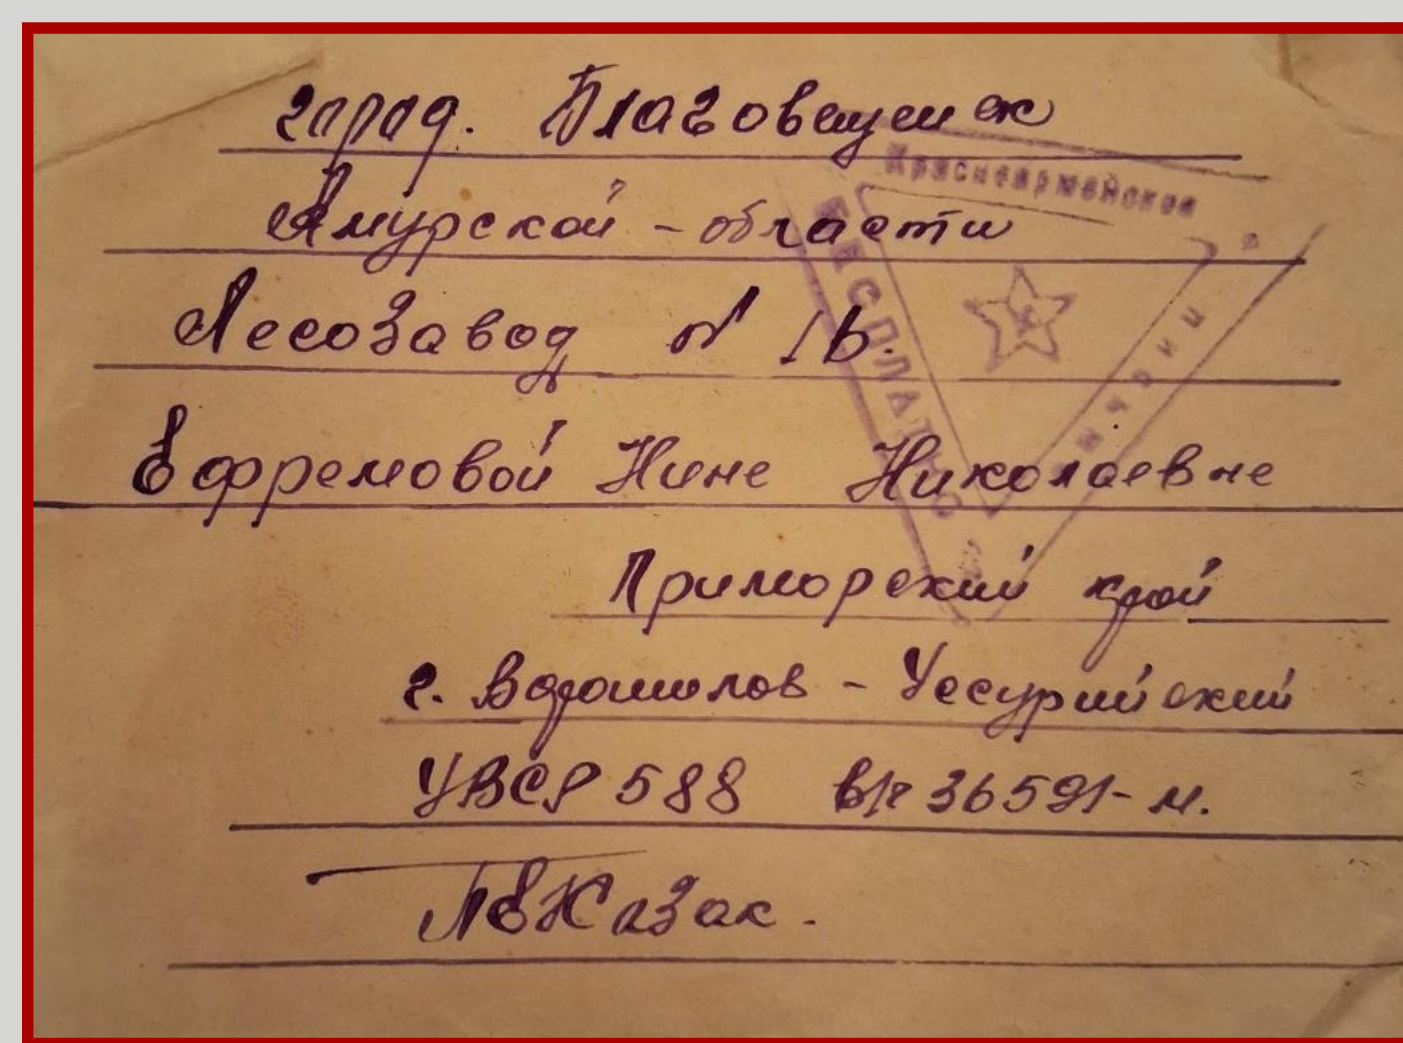 город. Благовещенск
Амурской - области
Лесозавод № 16.
Ефремовой Нине Николаевне
Приморский край
г. Ворошилов - Уссурийский
УВСР 588 в/ч 36591-м.
Казак.
Красноармейское
БЕСПЛАТНО